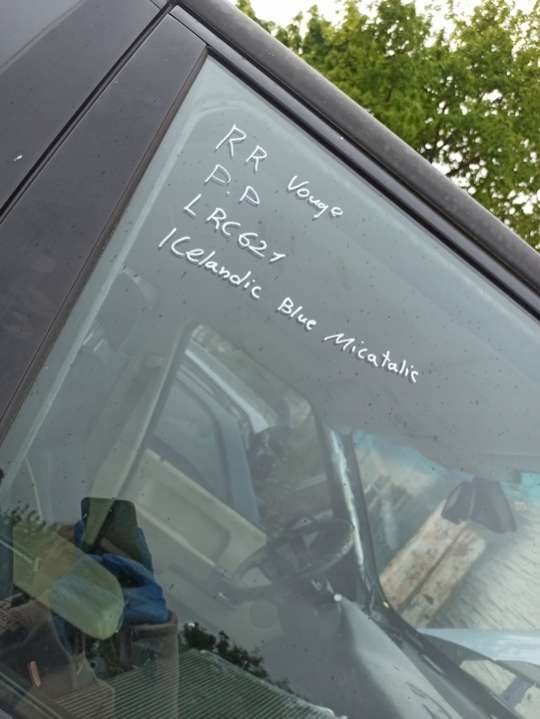 RR Vouge
P.P
LRC621
Icelandic Blue Micatalic